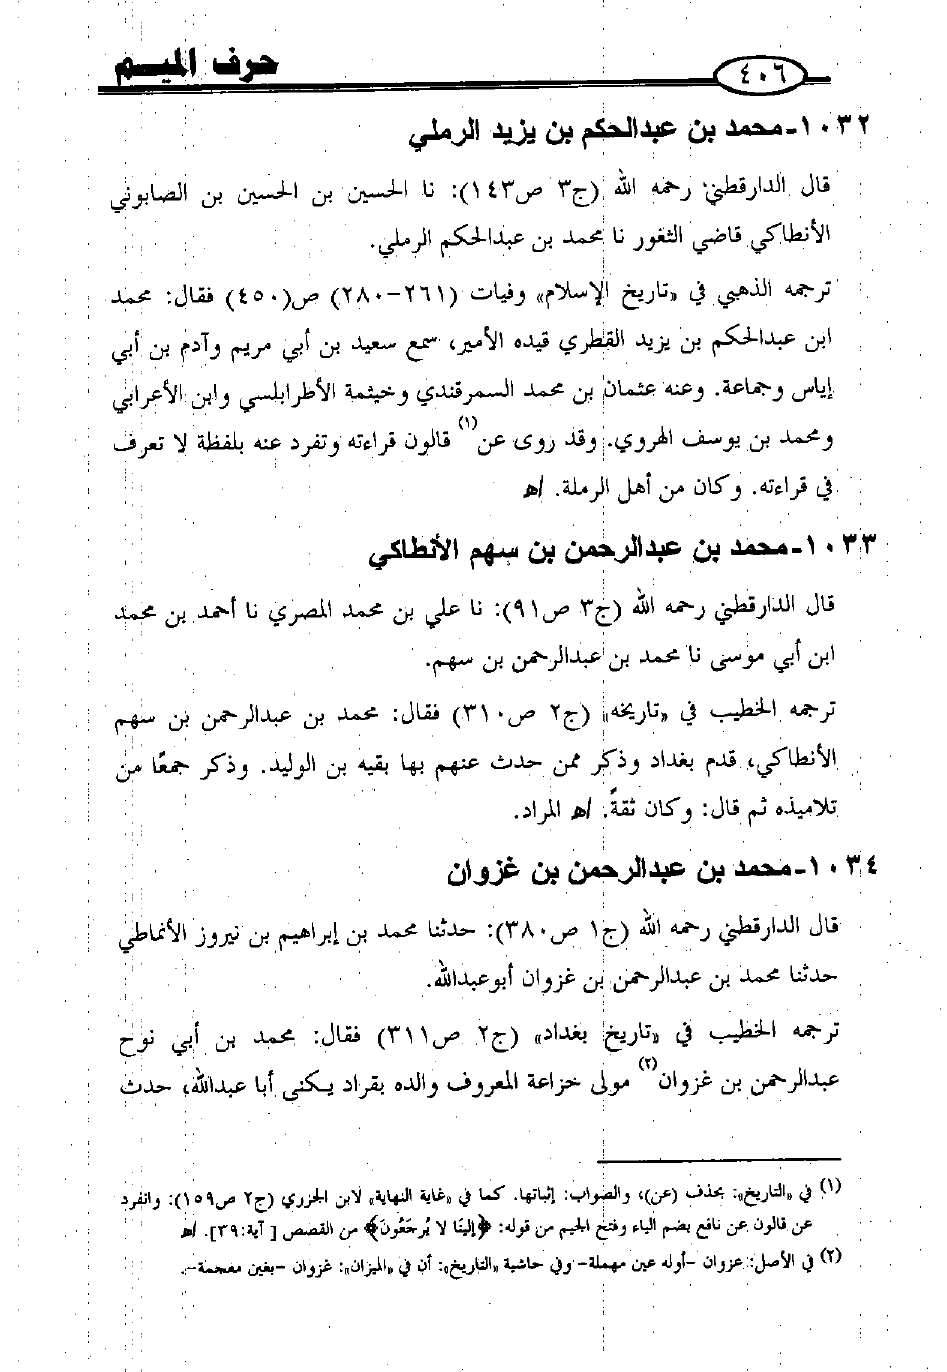 ٤٠٦
حرف الميم
١٠٣٢-محمد بن عبدالحكم بن يزيد الرملي
قال الدارقطني رحمه الله (ج٣ ص١٤٣): نا الحسين بن الحسين بن الصابوني
الأنطاكي قاضي الثغور نا محمد بن عبدالحكم الرملي.
ترجمه الذهبي في «تاريخ الإسلام» وفيات (٢٦١-٢٨٠) ص(٤٥٠) فقال: محمد
ابن عبدالحكم بن يزيد القطري قيده الأمير، سمع سعيد بن أبي مريم وآدم بن أبي
إياس وجماعة. وعنه عثمان بن محمد السمرقندي وخيثمة الأطرابلسي وابن الأعرابي
ومحمد بن يوسف الهروي. وقد روى عن(١) قالون قراءته وتفرد عنه بلفظة لا تعرف
في قراءته. وكان من أهل الرملة. اﻫ
١٠٣٣-محمد بن عبدالرحمن بن سهم الأنطاكي
قال الدارقطني رحمه الله (ج٣ ص٩١): نا علي بن محمد المصري نا أحمد بن محمد
ابن أبي موسى نا محمد بن عبدالرحمن بن سهم.
ترجمه الخطيب في «تاريخه» (ج٢ ص٣١٠) فقال: محمد بن عبدالرحمن بن سهم
الأنطاكي، قدم بغداد وذكر ممن حدث عنهم بها بقيه بن الوليد. وذكر جمعًا من
تلاميذه ثم قال: وكان ثقةً. اﻫ المراد.
١٠٣٤-محمد بن عبدالرحمن بن غزوان
قال الدارقطني رحمه الله (ج١ ص٣٨٠): حدثنا محمد بن إبراهيم بن نيروز الأنماطي
حدثنا محمد بن عبدالرحمن بن غزوان أبوعبدالله.
ترجمه الخطيب في «تاريخ بغداد» (ج٢ ص٣١١) فقال: محمد بن أبي نوح
عبدالرحمن بن غزوان(٢) مولى خزاعة المعروف والده بقراد يكنى أبا عبدالله، حدث
(١) في «التاريخ»: بحذف (عن)، والصواب: إثباتها. كما في «غاية النهاية» لابن الجزري (ج٢ ص١٥٩): وانفرد
عن قالون عن نافع بضم الياء وفتح الجيم من قوله: ﴿إلينا لا يُرجَعُونَ﴾ من القصص [آية:٣٩]. اﻫ
(٢) في الأصل: عزوان -أوله عين مهملة- وفي حاشية «التاريخ»: أن في «الميزان»: غزوان -بغين معجمة-.